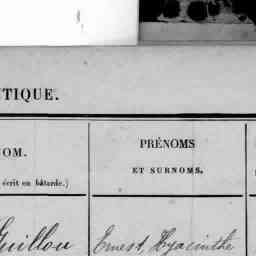 TIQUE.
NOM.
PRÉNOMS
ET SURNOMS.
écrit en bâtarde.)
Guillou
Ernest, Hyacinthe